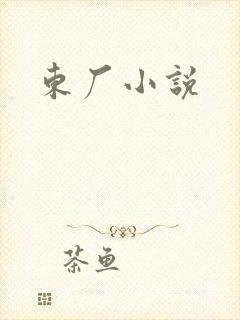 東厂小說
茶鱼